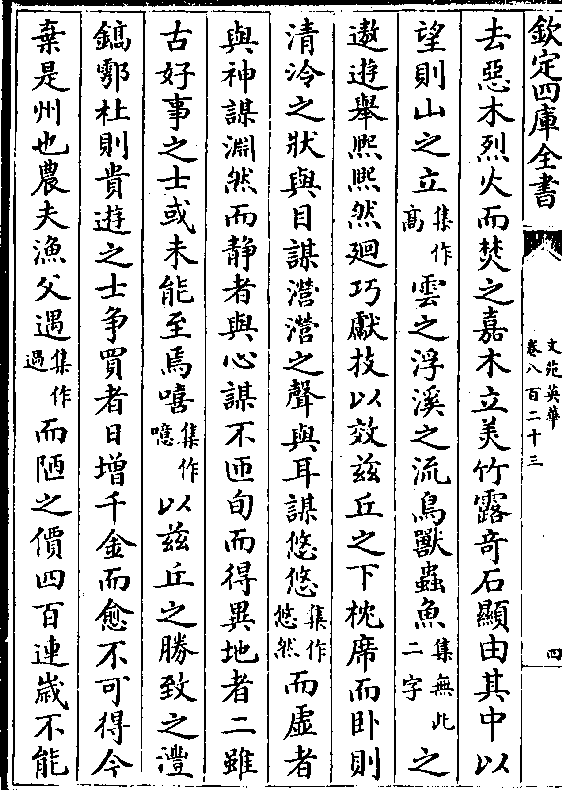 欽定四庫全書
文苑英華
卷八百二十三
四
去惡木烈火而焚之嘉木立美竹露奇石顯由其中以
望則山之立集作高雲之浮溪之流鳥獸蟲魚集無此二字之
遨遊舉熙熙然廻巧獻技以效兹丘之下枕席而卧則
清泠之狀與目謀瀯瀯之聲與耳謀悠悠集作悠然而虛者
與神謀淵然而靜者與心謀不匝旬而得異地者二雖
古好事之士或未能至焉嘻集作噫以兹丘之勝致之灃
鎬鄠杜則貴遊之士争買者日增千金而愈不可得今
棄是州也農夫漁父遇集作過而陋之價四百連嵗不能